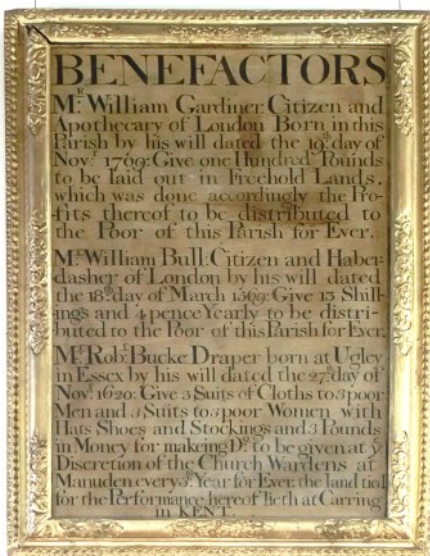 BENEFACTORS
Mr. William Gardiner: Citizen and
Apothecary of London Born in this
Parish by his will dated the 19th day of
Novr. 1769: Give one Hundred Pounds
to be laid out in Freehold Lands,
which was done accordingly the Pro-
fits thereof to be distributed to
the Poor of this Parish for Ever.
Mr. William Bull: Citizen and Haber-
dasher of London by his will dated
the 18th day of March 1569: Give 13 Shill-
ings and 4 pence Yearly to be distri-
buted to the Poor of this Parish for Ever.
Mr. Robt. Bucke Draper born at Ugley
in Essex by his will dated the 27th day of
Novr. 1620: Give 3 Suits of Cloths to 3 poor
Men and 3 Suits to 3 poor Women with
Hats Shoes and Stockings and 3 Pounds
in Money for makeing Do. to be given at ye
Discretion of the Church Wardens at
Manuden every 3d. Year for Ever: the land tied
for the Performance hereof lieth at Carring
in KENT.